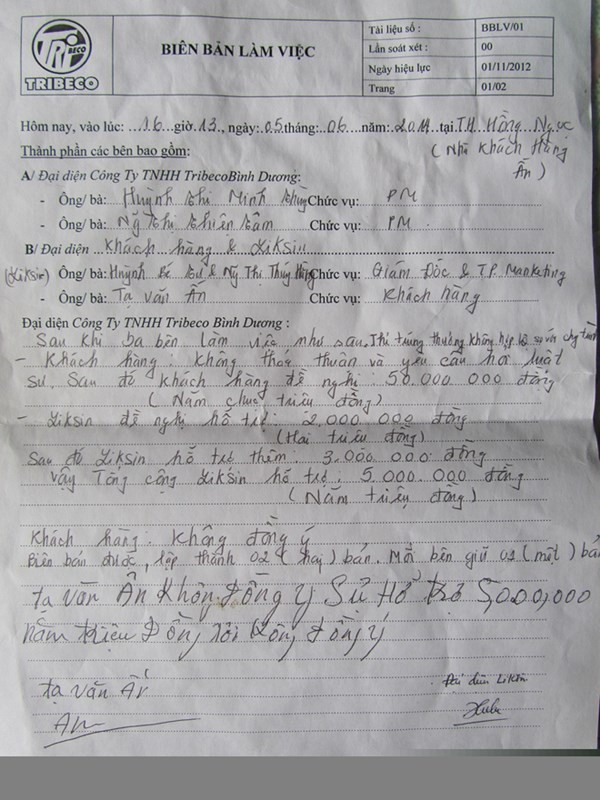 TRI BECO
TRIBECO
BIÊN BẢN LÀM VIỆC
Tài liệu số : BBLV/01
Lần soát xét : 00
Ngày hiệu lực 01/11/2012
Trang 01/02
Hôm nay, vào lúc: 16 giờ 13, ngày: 05 tháng: 06 năm: 2014 tại TH. Hồng Ngực
Thành phần các bên bao gồm: (Nhà Khách Hàng Ấn)
A/ Đại diện Công Ty TNHH TribecoBình Dương:
- Ông/ bà: Huỳnh thị Minh thùy Chức vụ: PM
- Ông/ bà: Ng̃ thị thiên tâm Chức vụ: PM
B/ Đại diện khách hàng & Liksin
(Liksin) Ông/ bà: Huỳnh & Ng̃ Thị Thúy Hằng Chức vụ: Giám Đốc & T.P. Marketing
- Ông/ bà: Tạ văn Ấn Chức vụ: khách hàng
Đại diện Công Ty TNHH Tribeco Bình Dương :
Sau khi ba bên làm việc như sau. Thì trúng thưởng không hợp lệ so với
- Khách hàng: không thỏa thuận và yêu cầu hỏi luật
sư. Sau đó khách hàng đề nghị: 50.000 000 đồng
(Năm chục triệu đồng)
- Liksin đề nghị hỗ trợ: 2.000 000 đồng
(Hai triệu đồng)
Sau đó Liksin hỗ trợ thêm: 3.000 000 đồng
vậy Tổng cộng Liksin hỗ trợ: 5.000 000 đồng
(Năm triệu đồng)
Khách hàng: không đồng ý
Biên bản được lập thành 02 (hay) bản. Mỗi bên giữ 01 (một) bản
tạ văn Ấn Không Đồng ý Sự Hổ trợ 5,000,000
năm triệu Đồng tôi không Đồng ý
tạ văn Ấn
Đại diện Liksin